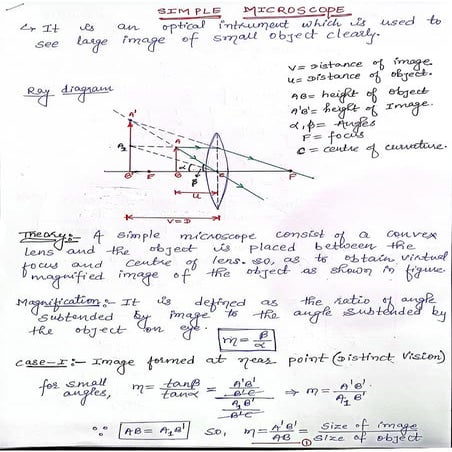 SIMPLE MICROSCOPE
↳ It is an optical intrument which is used to
see large image of small object clearly.
V = Distance of image.
u = Distance of object.
AB = height of object
A'B' = height of Image.
α, β = Angles
F = focus
C = centre of curvature.
Ray diagram
A'
A₁
A
α
β
B'
F'
B
C
F
u
V=D
Theory:- A simple microscope consist of a convex
lens and the object is placed between the
focus and centre of lens. so, as to obtain virtual
magnified image of the object as shown in figure
Magnification:- It is defined as the ratio of angle
subtended by image to the angle subtended by
the object on eye.
m = β/α
Case-I:- Image formed at near point (Distinct Vision)
for small angles, m = tanβ/tanα = (A'B'/B'C)/(A₁B'/B'C) ⇒ m = A'B'/A₁B'
∵ AB = A₁B' so, m = A'B'/AB = Size of image/Size of object
①